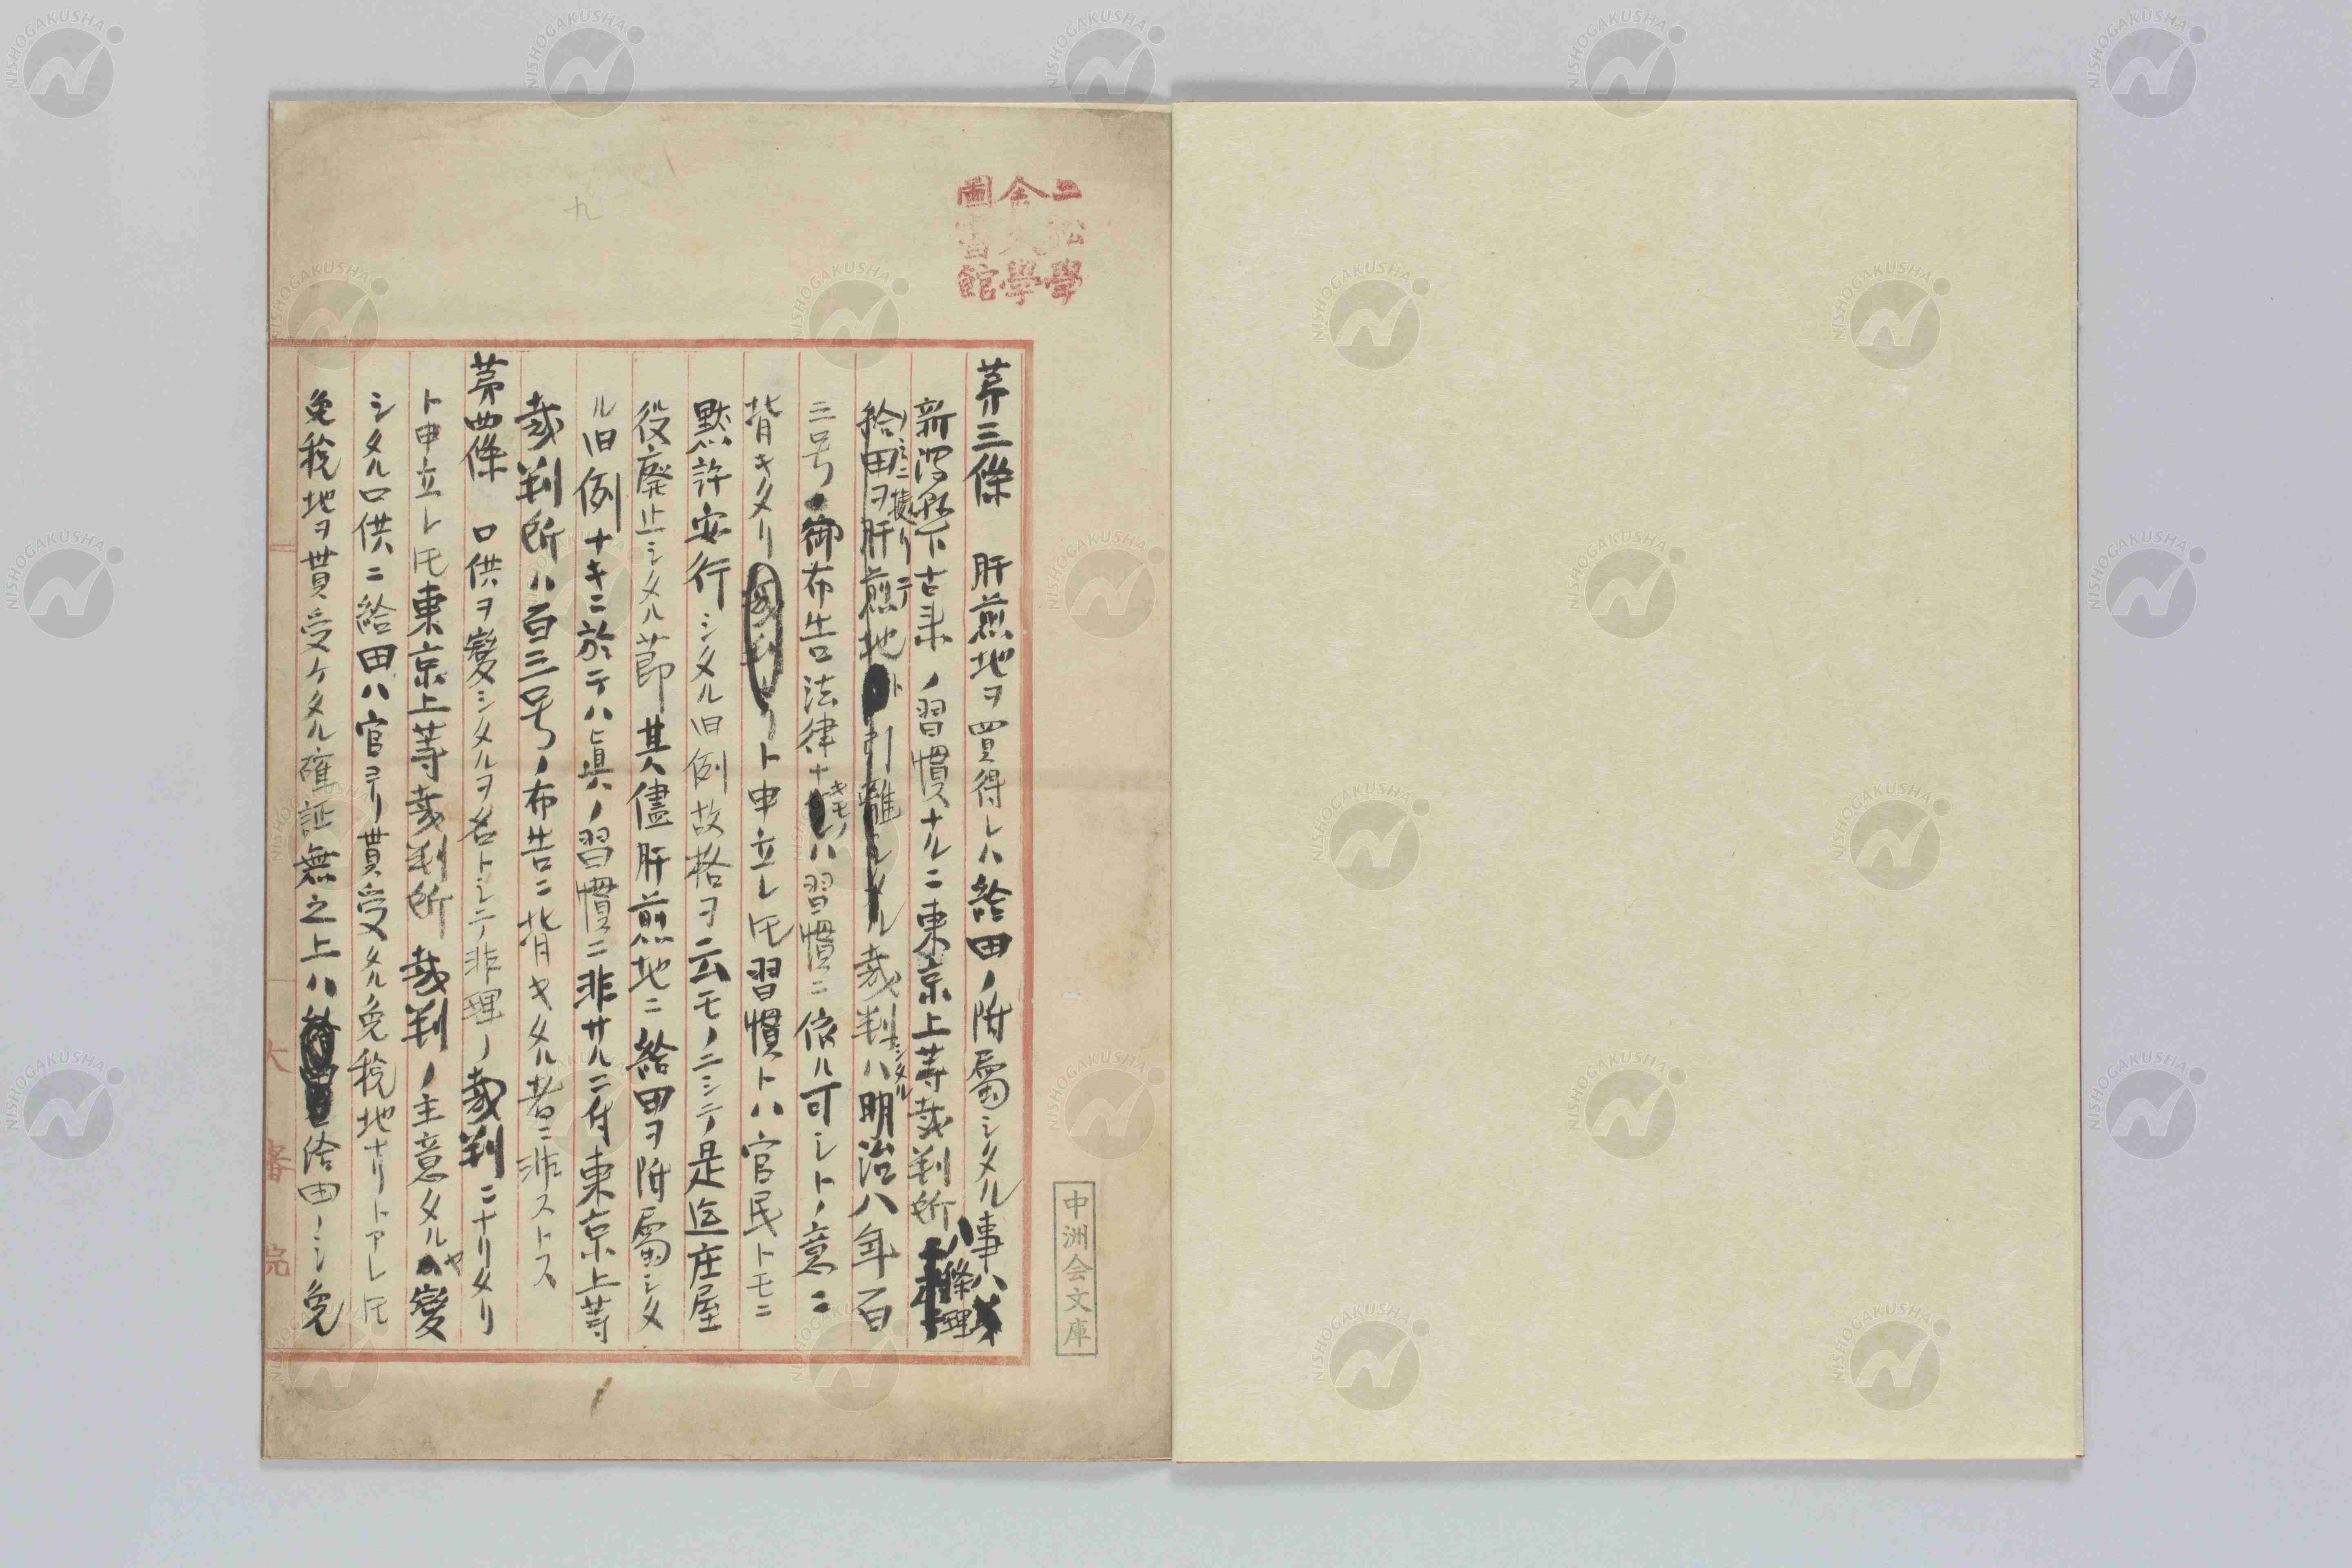 二松學
舍大學
圖書館
中洲会文庫
九
第三條 肝煎地ヲ買得レハ給田ノ附屬シタル事ハ
新潟縣下古来ノ習慣ナルニ東京上等裁判所ハ條理
ノミニ據リテ
給田ヲ肝煎地ト引離シタル裁判シタルハ明治八年百
三号ノ御布告法律ナキモノハ習慣ニ依ル可シトノ意ニ
背キタリト申立レ圧習慣トハ官民トモニ
黙許安行シタル旧例故格ヲ云モノニシテ是迄庄屋
役廃止シタル節其儘肝煎地ニ給田ヲ附屬シタ
ル旧例ナキニ於テハ眞ノ習慣ニ非サルニ付東京上等
裁判所ハ百三号ノ布告ニ背キタル者ニ非ストス
第四條 口供ヲ變シタルヲ名トシテ非理ノ裁判ニナリタリ
ト申立レ圧東京上等裁判所裁判ノ主意タルヤ變
シタル口供ニ給田ハ官ヨリ貰受タル免税地ナリトアレ圧
免税地ヲ貰受ケタル確証無之上ハ給田ノシ免
大審院
NISHOGAKUSHA